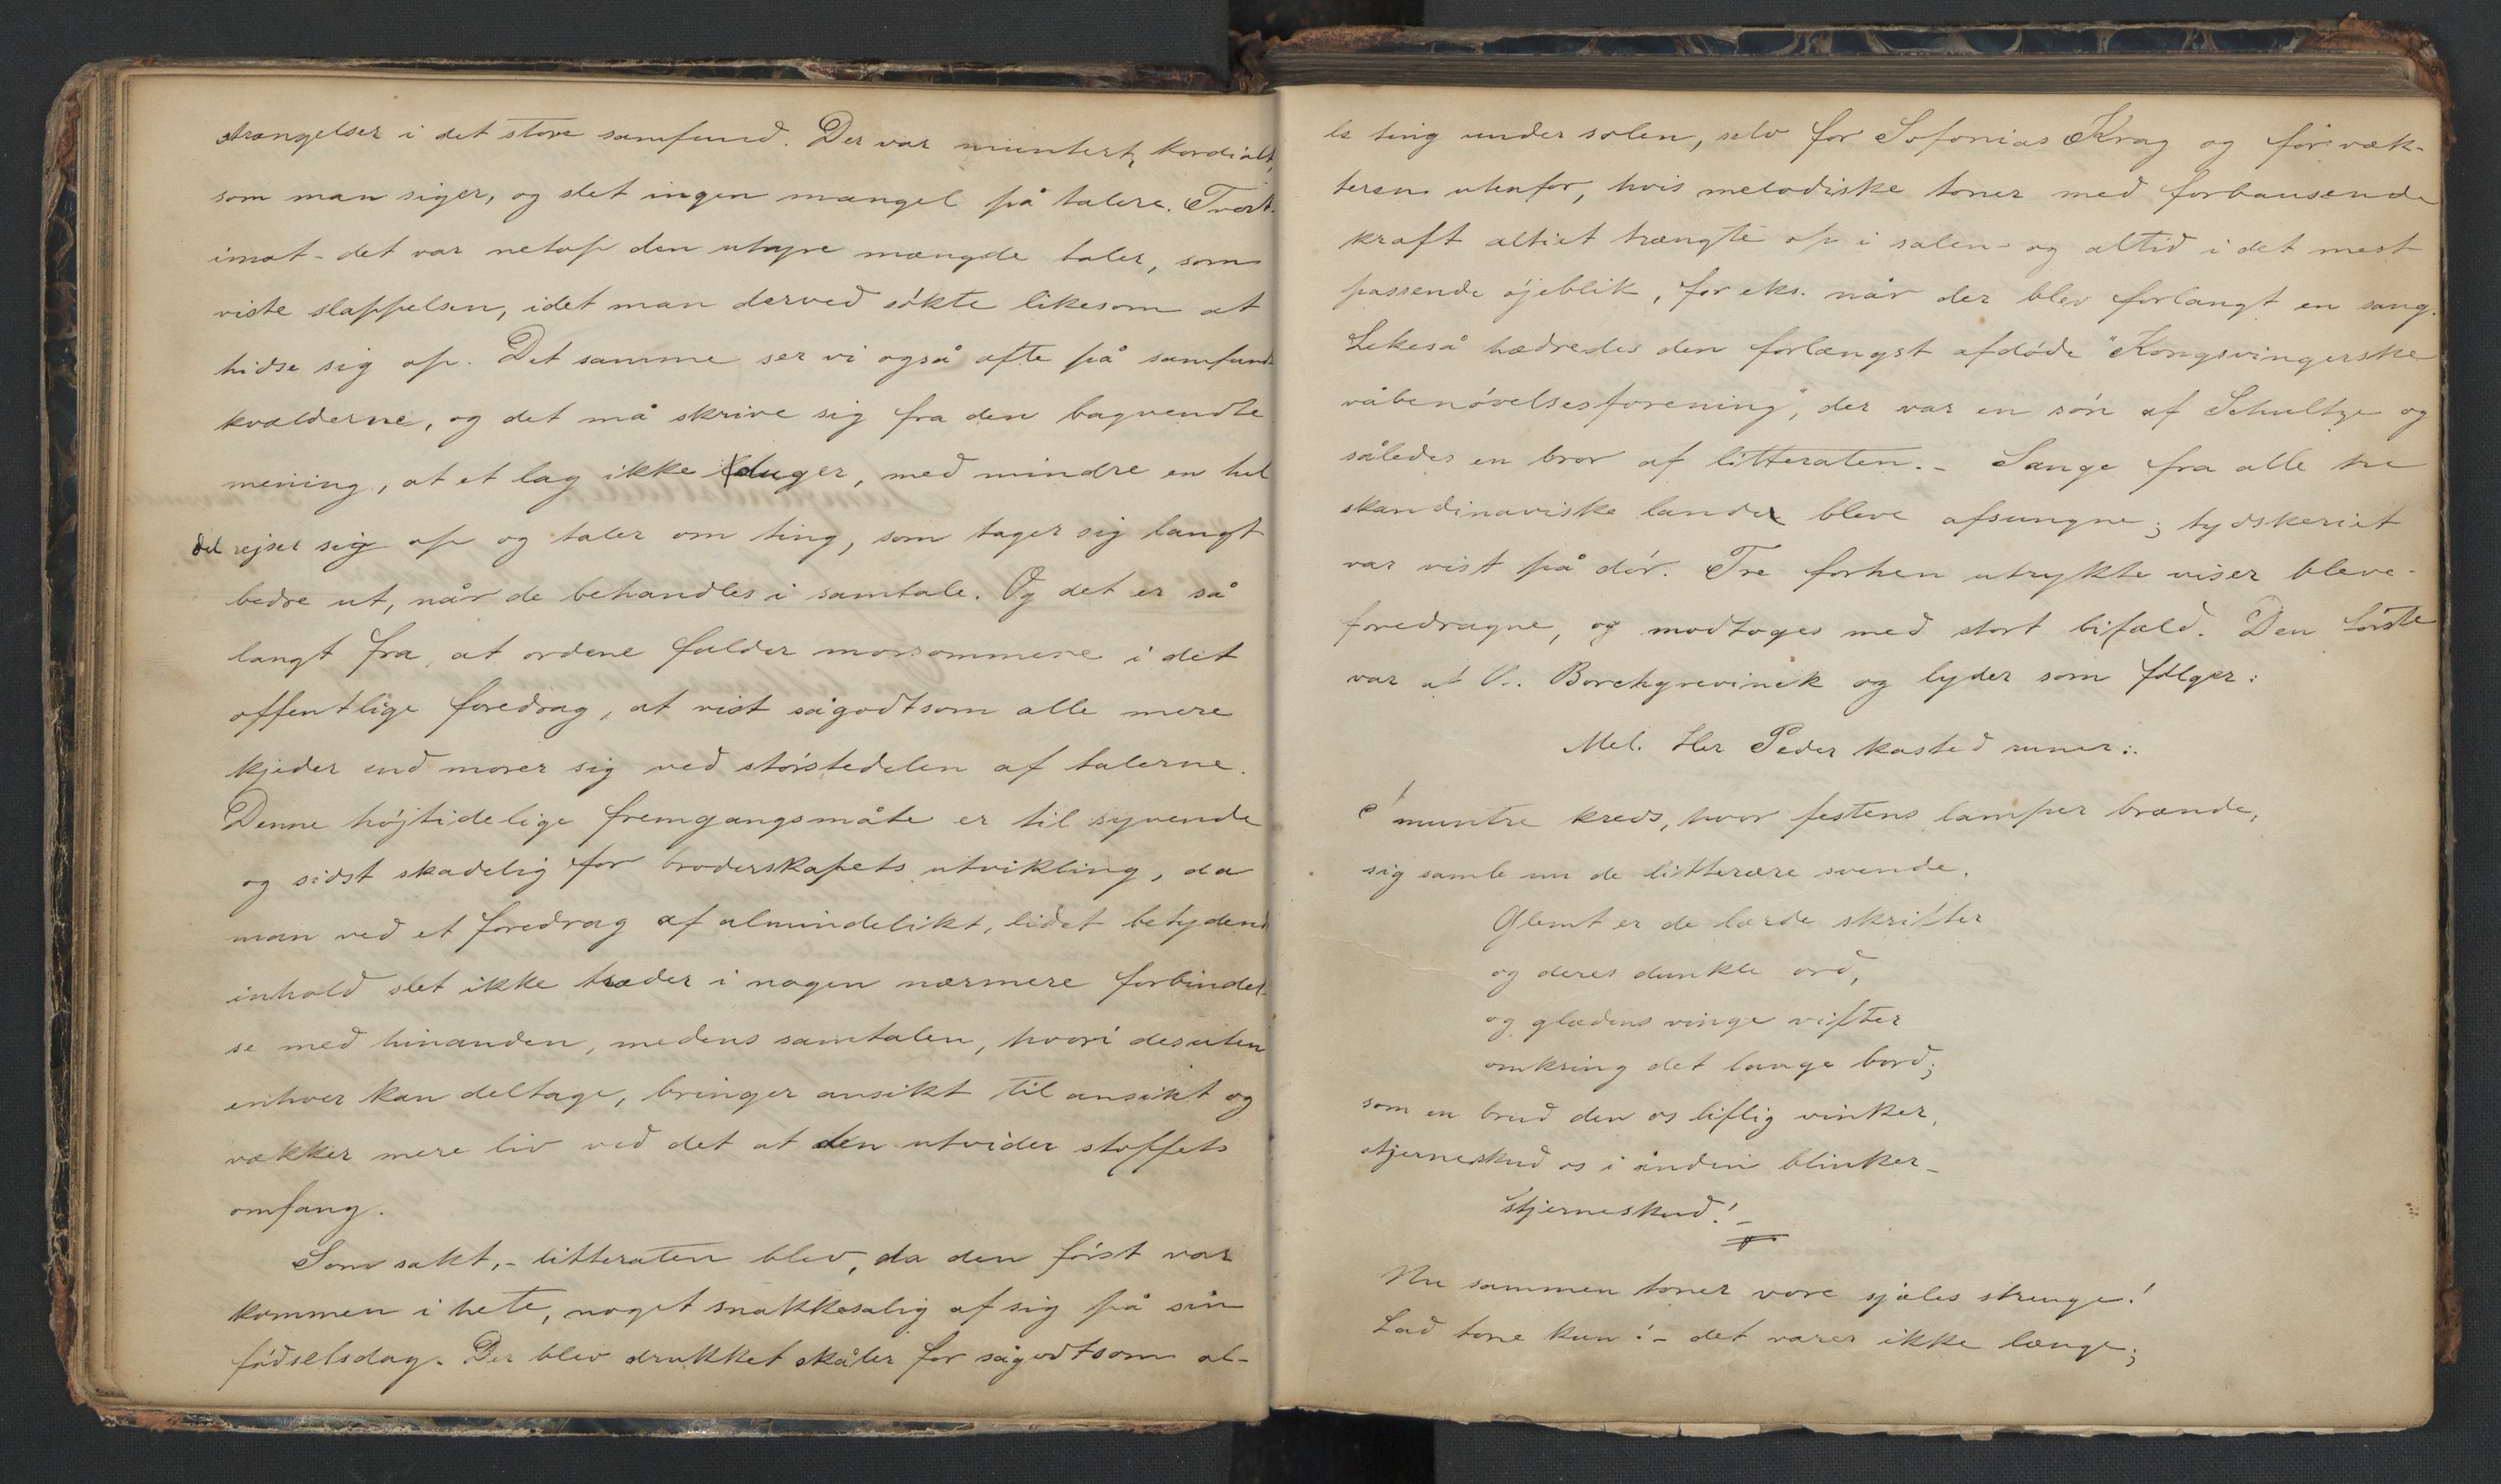 strængelser i det store samfund. Der var muntert, kordialt,
som man siger, og slet ingen mangel på talere. Tvert-
imot - det var netop den utgyre mængde taler, som
viste slappelsen, idet man derved søkte likesom at
hidse sig op. Det samme ser vi også ofte på samfunds-
kvælderne, og det må skrive sig fra den bagvendte
mening, at et lag ikke duger, med mindre en hel
del rejser sig op og taler om ting, som tager sig langt
bedre ut, når de behandles i samtale. Og det er så
langt fra, at ordene falder morsommere i det
offentlige foredrag, at vist sågodtsom alle mere
kjeder end morer sig ved størstedelen af talerne.
Denne højtidelige fremgangsmåte er til syvende
og sidst skadelig for broderskapets utvikling, da
man ved et foredrag af almindelikt, lidet betydend
inhold slet ikke træder i nogen nærmere forbindel-
se med hinanden, medens samtalen, hvori desuten
enhver kan deltage, bringer ansikt til ansikt og
vækker mere liv ved det at den utvider stoffets
omfang.
Som sakt, - litteraten blev, da den først var
kommen i hete, noget snakkesalig af sig på sin
fødselsdag. Der blev drukket skåler for sågodtsom al-
le ting under solen, selv for Sofonias Krag og for væk-
teren utenfor, hvis melodiske toner med forbausende
kraft altiet trængte op i salen - og altid i det mest
passende øjeblik, for eks. når der blev forlangt en sang.
Lekeså hædredes den forlængst afdøde "Kongsvingerske
våbenøvelsesforening", der var en søn af Schultze og
således en bror af litteraten. - Sange fra alle tre
skandinaviske lande bleve afsungne; tydskeriet
var vist på dør. Tre forhen utrykte viser bleve
foredragne, og modtoges med stort bifald. Den første
var af V. Borchgrevinck og lyder som følger:
Mel. Her Peder kasted runer:.
I muntre kreds, hvor festens lamper brænde,
sig samle nu de litterære svende.
Glemt er de lærde skrifter
og deres dunkle ord,
og glædens vinge vifter
omkring det lange bord;
som en brud den os liflig vinker,
stjerneskud os i ånden blinker -
stjerneskud! -
Nu sammen toner vore sjæles strenge!
Lad tone kun! - det varer ikke længe;